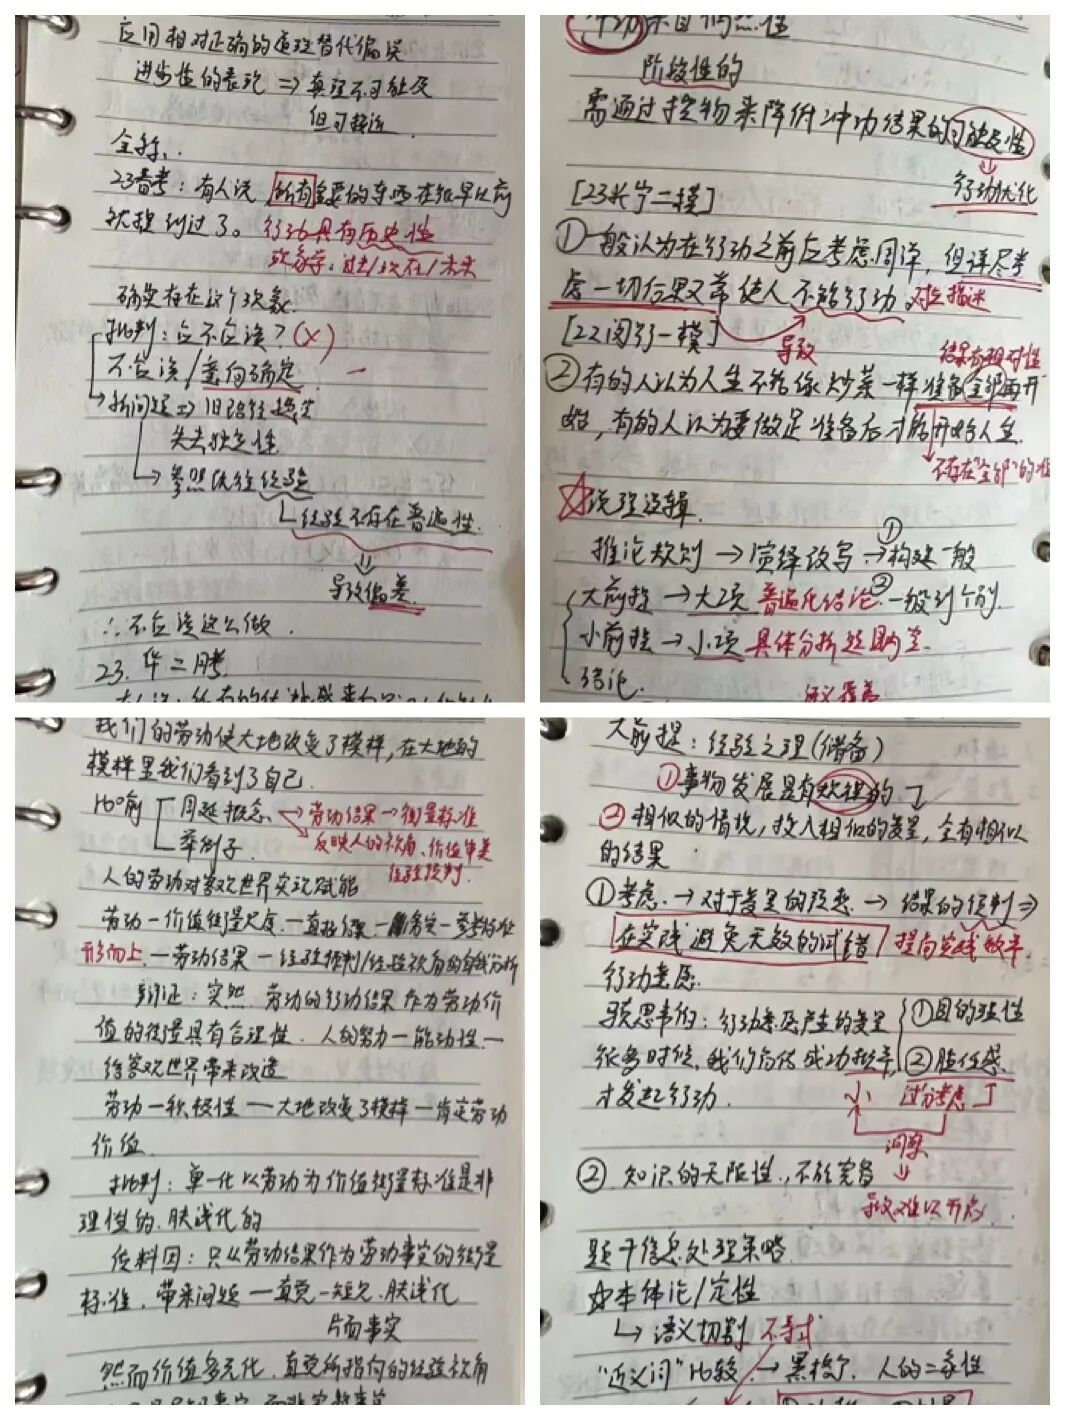 应用相对正确的
替代偏误
进步性的表论 ⇒ 真理不可能及
但可接近
全称:
23春考：有人说，所有重要的东西在很早以前
就提到过了。行动具有历史性
过去/现在/未来
确实存在这个次数
批判：应不应该？(X)
不应该/
⇒ 旧
失去独立性
参照既往经验
经验不存在普遍性.
⇓
导致偏差.
∴不应该这么做.
23. 华二月考.
冲动来自
性
阶段性的
需通过控物来降低冲动结果的可能及性
行动优化
[23长宁二模]
①一般认为在行动之前应考虑周详，但详尽考
虑一切后果又常使人不能行动. 对应描述
[22闵行一模] 导致
结果有相对性
②有的人认为人生不能像炒菜一样准备全部再开
始，有的人认为要做足准备后才能开始人生.
不存在"全部"的
☆说理逻辑.
推论规则 → 演绎改写 → ①构建一般
大前提 → 大项 普遍化结论. ②一般到个别.
小前提 → 小项 具体分析
结论.
语义覆盖
我们的劳动使大地改变了模样，在大地的
模样里我们看到了自己.
160前 周延概念 → 劳动结果一衡量标准
举例子. 反映人的视角、价值审美
经验预判.
人的劳动对客观世界实现赋能
劳动一价值衡量尺度.一直接结果一
事实一参考标准
形而上.一劳动结果一经验推判/经验视角的
分析
辩证：实然 劳动的行动结果作为劳动价
值的衡量具有合理性. 人的努力一能动性.一
给客观世界带来改造
劳动一积极性一大地改变了模样一肯定劳动
价值
批判：单一化以劳动为价值衡量标准是非
理性的.肤浅化的
质料因：只从劳动结果作为劳动事实的衡量
标准，带来问题一直觉一短见.肤浅化
片面事实
然而价值多元化.直觉所指向的经验视角
大前提：经验之理(储备)
①事物发展是有规律的.
②相似的情境，投入相似的变量，会有相似
的结果
①考虑. → 对于变量的预想 → 结果的预判 ⇒
在实践避免无效的试错/提高实践效率.
行动意愿.
预思事物：行动意愿产生的变量 ①目的理性
很多时候，我们高估成功概率， ②胜任感
才发起行动. 过分考虑
洞察
②. 知识的无限性.，不能完备 ⇓
导致难以开启.
题干信息处理策略.
☆本体论/定性
↳ 语义切割 不等式
"近义词"比较. → 黑格尔. 人的二象性